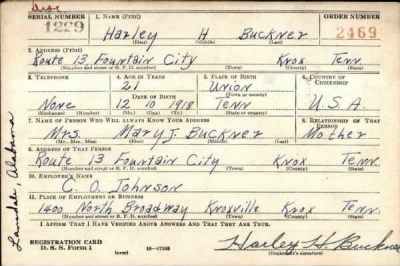 Disc
SERIAL NUMBER 1. NAME (Print) ORDER NUMBER
1229 Harley H Buckner 2469
(First) (Middle) (Last)
2. ADDRESS (Print)
Route 13 Fountain City Knox Tenn.
(Number and street or R. F. D. number) (Town) (County) (State)
3. TELEPHONE 4. AGE IN YEARS 5. PLACE OF BIRTH 6. COUNTRY OF CITIZENSHIP
21 Union
DATE OF BIRTH (Town or county)
None 12 10 1918 Tenn U.S.A.
(Exchange) (Number) (Mo.) (Day) (Yr.) (State or country)
7. NAME OF PERSON WHO WILL ALWAYS KNOW YOUR ADDRESS 8. RELATIONSHIP OF THAT PERSON
Mrs. Mary J. Buckner Mother
(Mr., Mrs., Miss) (First) (Middle) (Last)
9. ADDRESS OF THAT PERSON
Route 13 Fountain City Knox Tenn.
(Number and street or R. F. D. number) (Town) (County) (State)
10. EMPLOYER'S NAME
C. O. Johnson
11. PLACE OF EMPLOYMENT OR BUSINESS
1400 North Broadway Knoxville Knox Tenn.
(Number and street or R. F. D. number) (Town) (County) (State)
I AFFIRM THAT I HAVE VERIFIED ABOVE ANSWERS AND THAT THEY ARE TRUE.
REGISTRATION CARD
D. S. S. Form 1 (over) 16—17105 Harley H. Buckner
(Registrant's signature)
Alabama